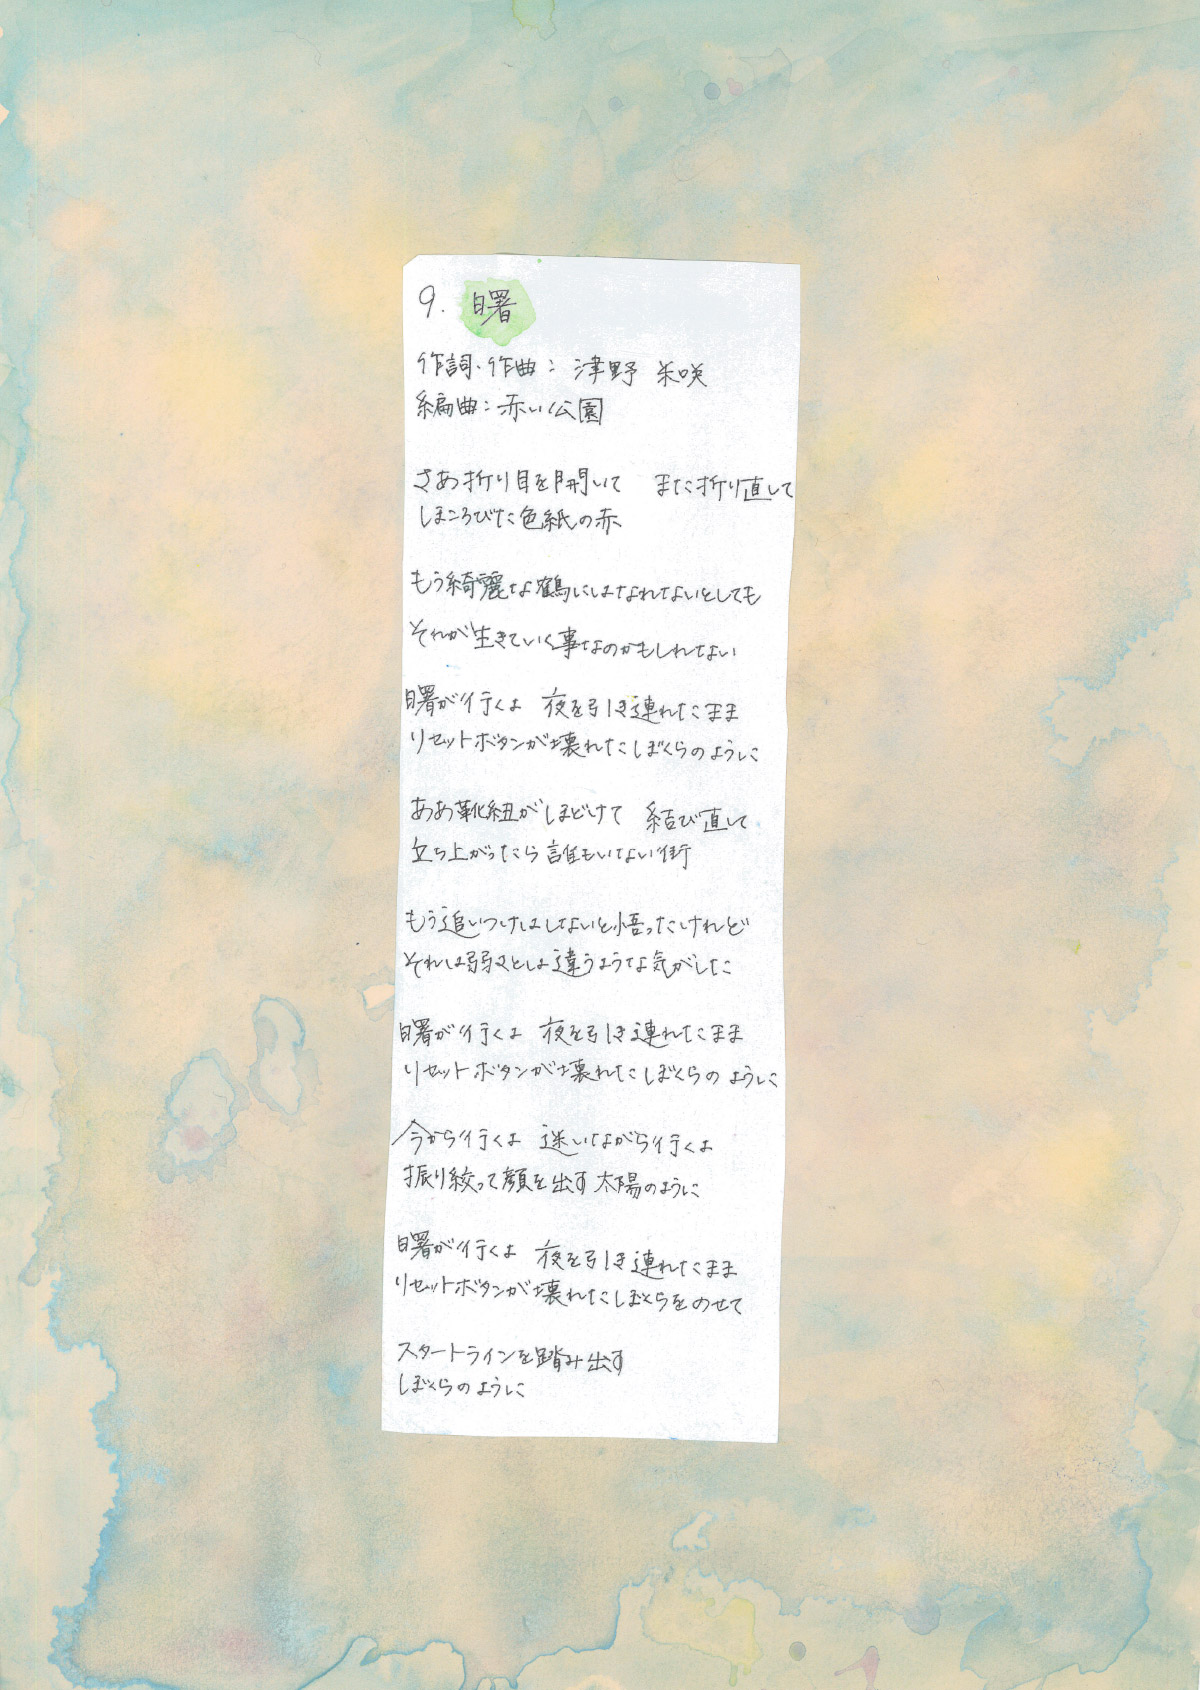 9. 曙
作詞・作曲：津野 米咲
編曲：赤い公園
さあ折り目を開いて　また折り直して
しまころびた色紙の赤
もう綺麗な鶴にはなれないとしても
それが生きていく事なのかもしれない
曙が行くよ　夜を引き連れたまま
リセットボタンが壊れたぼくらのように
ああ靴紐がほどけて　結び直して
立ち上がったら誰もいない街
もう追いつけはしないと悟ったけれど
それは弱さとは違うような気がした
曙が行くよ　夜を引き連れたまま
リセットボタンが壊れたぼくらのように
今から行くよ　迷いながら行くよ
振り絞って顔を出す太陽のように
曙が行くよ　夜を引き連れたまま
リセットボタンが壊れたぼくらをのせて
スタートラインを踏み出す
ぼくらのように